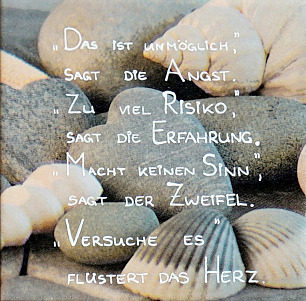 „Das ist unmöglich,"
sagt die Angst.
„Zu viel Risiko,"
sagt die Erfahrung.
„Macht keinen Sinn",
sagt der Zweifel.
„Versuche es"
flüstert das Herz.